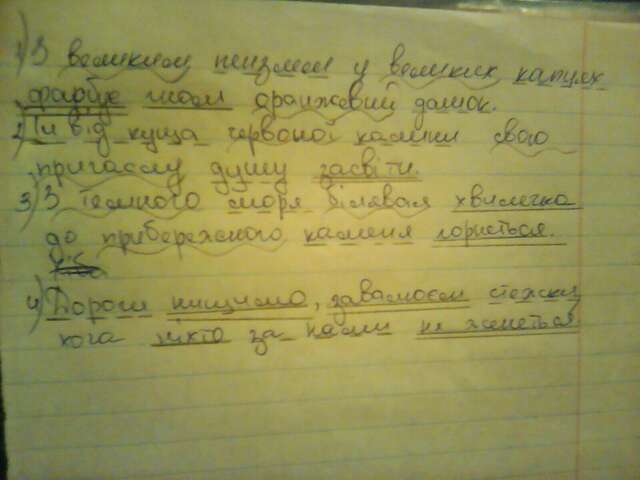 1) З великим пензлем у великих капцях
фарбує гном оранжевий домок.
2) Ти від куща червоної калини свою
пригаслу душу засвіти.
3) З темного моря білявая хвилечка
до прибережного каменя горнеться.
4) Дороги нищимо, завалюєм стежки
кога ніхто за нами не женеться